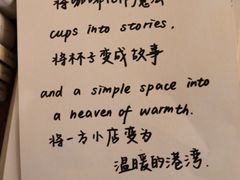 cups into stories.
将杯子变成故事
and a simple space into
a heaven of warmth.
将一方小店变为
温暖的港湾.